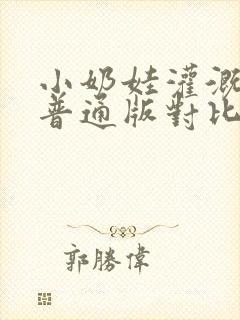 小奶娃灌溉
普通版對比
郭勝偉